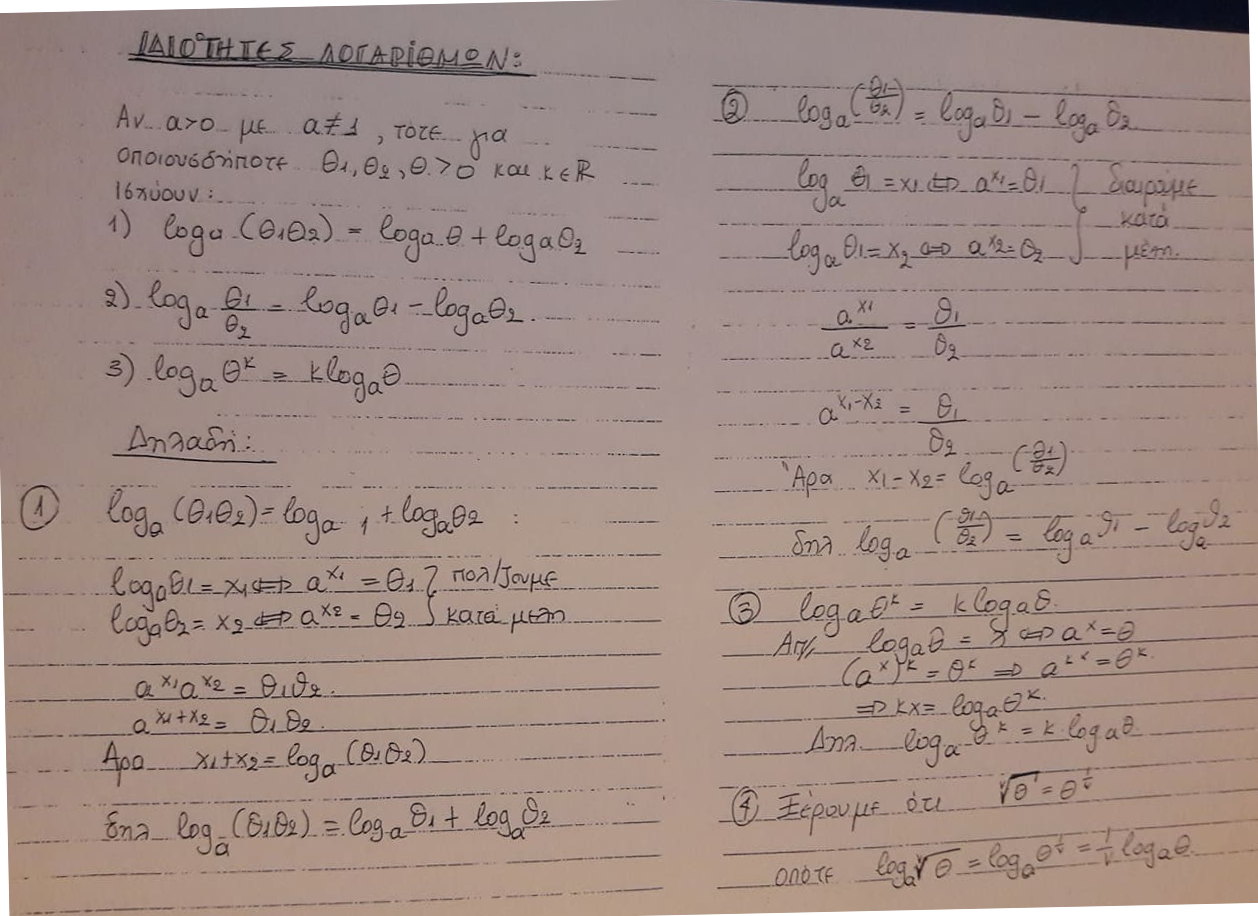 ΙΔΙΟΤΗΤΕΣ ΛΟΓΑΡΙΘΜΩΝ:
Αν α>0 με α≠1, τότε για
οποιουσδήποτε θ1, θ2, θ>0 και κ∈ℝ
ισχύουν:
1) logα (θ1θ2) = logα θ + logα θ2
2) logα θ1/θ2 = logα θ1 - logα θ2.
3) logα θ^κ = κ logα θ
Δηλαδή:
① logα (θ1θ2) = logα 1 + logα θ2 :
logα θ1 = x1 ⇔ α^x1 = θ1 } πολ/ζουμε
logα θ2 = x2 ⇔ α^x2 = θ2 } κατά μέλη
α^x1 α^x2 = θ1θ2.
α^x1+x2 = θ1θ2.
Άρα x1+x2 = logα (θ1θ2)
δηλ logα (θ1θ2) = logα θ1 + logα θ2
② logα (θ1/θ2) = logα θ1 - logα θ2
logα θ1 = x1 ⇔ α^x1 = θ1 } διαιρούμε
κατά
logα θ1 = x2 ⇔ α^x2 = θ2 } μέλη.
α^x1/α^x2 = θ1/θ2
α^x1-x2 = θ1/θ2
Άρα x1-x2 = logα (θ1/θ2)
δηλ logα (θ1/θ2) = logα θ1 - logα θ2
③ logα θ^κ = κ logα θ.
Απ/ξ logα θ = x ⇔ α^x = θ
(α^x)^κ = θ^κ ⇒ α^κx = θ^κ.
⇒ κx = logα θ^κ.
Δηλ logα θ^κ = κ logα θ
④ Ξέρουμε ότι ᵛ√θ = θ^1/ν
οπότε logα ᵛ√θ = logα θ^1/ν = 1/ν logα θ.